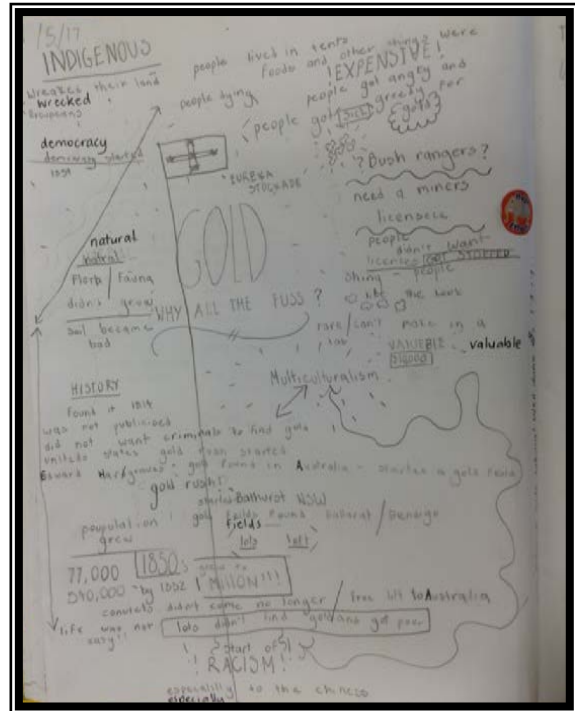 /5/17
INDIGENOUS
wreakes their land
wrecked
Europeans
people lived in tents
foods and other things were
!EXPENSIVE!
people dying
people got angry and
people got greedy for
gold
democracy
democracy started
EUREKA
STOCKADE
? Bush rangers?
need a miners
licensece
people
didn't want
licenses GOT STOPPED
shiny - people
the look
natural
Flora / Fauna
didn't grow
Soil became
bad
GOLD
WHY ALL THE FUSS?
rare/can't make in a
lab
valuable
Multiculturalism
HISTORY
found it 1814
was not publicised
did not want criminals to find gold
united states gold rush started
Edward Hargraves: gold found in Australia - started a gold rush
gold rush!
started Bathurst NSW
gold feilds found Ballarat / Bendigo
fields
lots left
poupulation
grew
77,000 1850s grew to
540,000 by 1852 1 MILLION!!!
convicts didn't come no longer / free bit to Australia
life was not
easy!!
lots didn't find gold and got poor
! start of !
! RACISM!
especialily to the chinese
especially